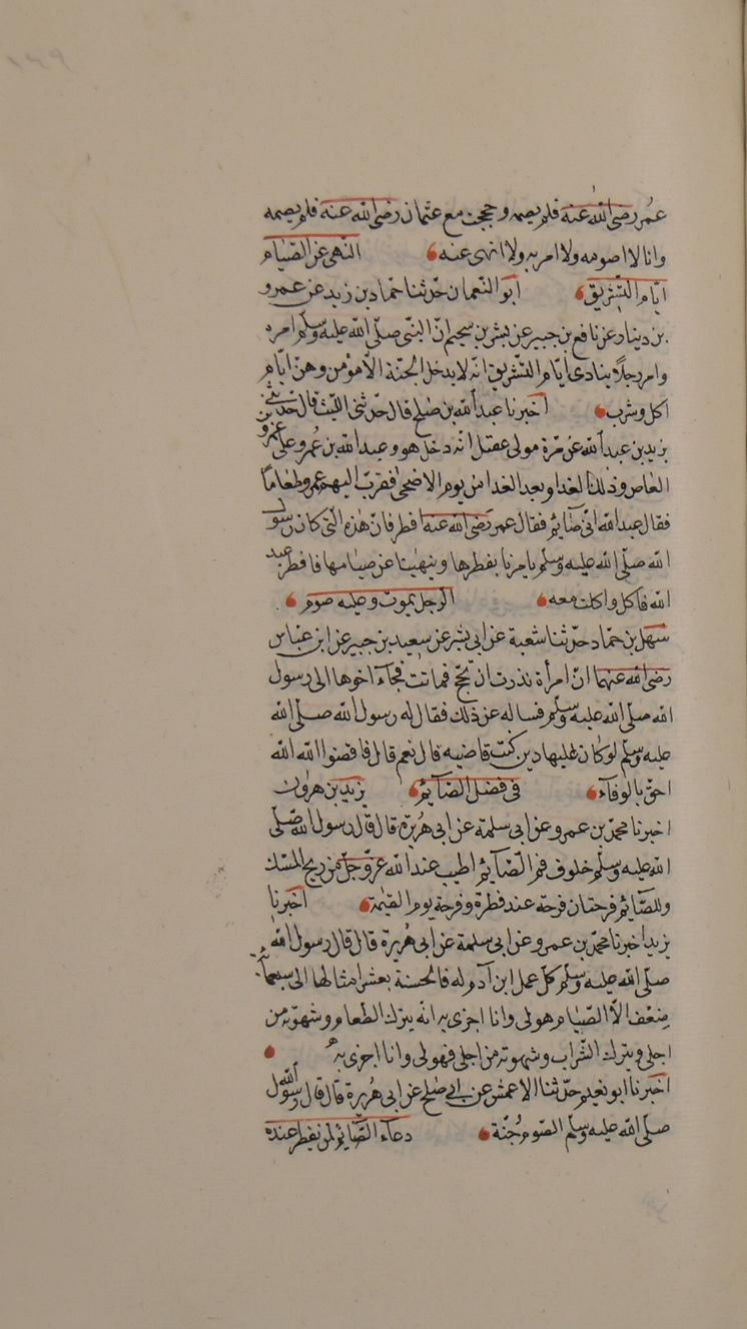 عمر رضى الله عنه فلم يصمه وحججت مع عثمان رضى الله عنه فلم يصمه
وانا لا اصومه ولا امر به ولا انهى عنه النهى عن الصيام
ايام التشريق ابو النعمان حدثنا حماد بن زيد عن عمرو
بن دينار عن نافع بن جبير عن بشر بن سحيم ان النبى صلى الله عليه وسلم امره
وامر رجلا ينادى ايام التشريق انه لا يدخل الجنة الا مؤمن وهن ايام
اكل وشرب اخبرنا عبد الله بن صلح قال حدثنى الليث قال حدثنى
يزيد بن عبد الله عن مرة مولى عقيل انه دخل هو وعبد الله بن عمرو على عمرو بن
العاص وذلك الغد او بعد الغد من يوم الاضحى فقرب اليهم عمرو طعاما
فقال عبد الله انى صايم فقال عمر رضى الله عنه افطر فان هذه التى كان رسول
الله صلى الله عليه وسلم يامرنا بفطرها وينهينا عن صيامها فافطر عبد
الله فاكل واكلت معه الرجل يموت وعليه صوم
سهل بن حماد حدثنا شعبة عن ابى بشر عن سعيد بن جبير عن ابن عباس
رضى الله عنهما ان امرأة نذرت ان تحج فماتت فجاء اخوها الى رسول
الله صلى الله عليه وسلم فساله عن ذلك فقال له رسول الله صلى الله
عليه وسلم لو كان عليها دين كنت قاضيه قال نعم قال فاقضوا الله الله
احق بالوفاء فى فضل الصايم يزيد بن هرون
اخبرنا محمد بن عمرو عن ابى سلمة عن ابى هريرة قال قال رسول الله صلى
الله عليه وسلم خلوف فم الصايم اطيب عند الله عز وجل من ريح المسك
وللصايم فرحتان فرحة عند فطره وفرحة يوم القيمة اخبرنا
يزيد اخبرنا محمد بن عمرو عن ابى سلمة عن ابى هريرة قال قال رسول الله
صلى الله عليه وسلم كل عمل ابن آدم له فالحسنة بعشر امثالها الى سبعمائة
ضعف الا الصيام هو لى وانا اجزى به انه يترك الطعام وشهوته من
اجلى ويترك الشراب وشهوته من اجلى فهو لى وانا اجزى به
اخبرنا ابو نعيم حدثنا الاعمش عن ابى صلح عن ابى هريرة قال قال رسول الله
صلى الله عليه وسلم الصوم جنة دعاء الصايم لمن يفطر عنده